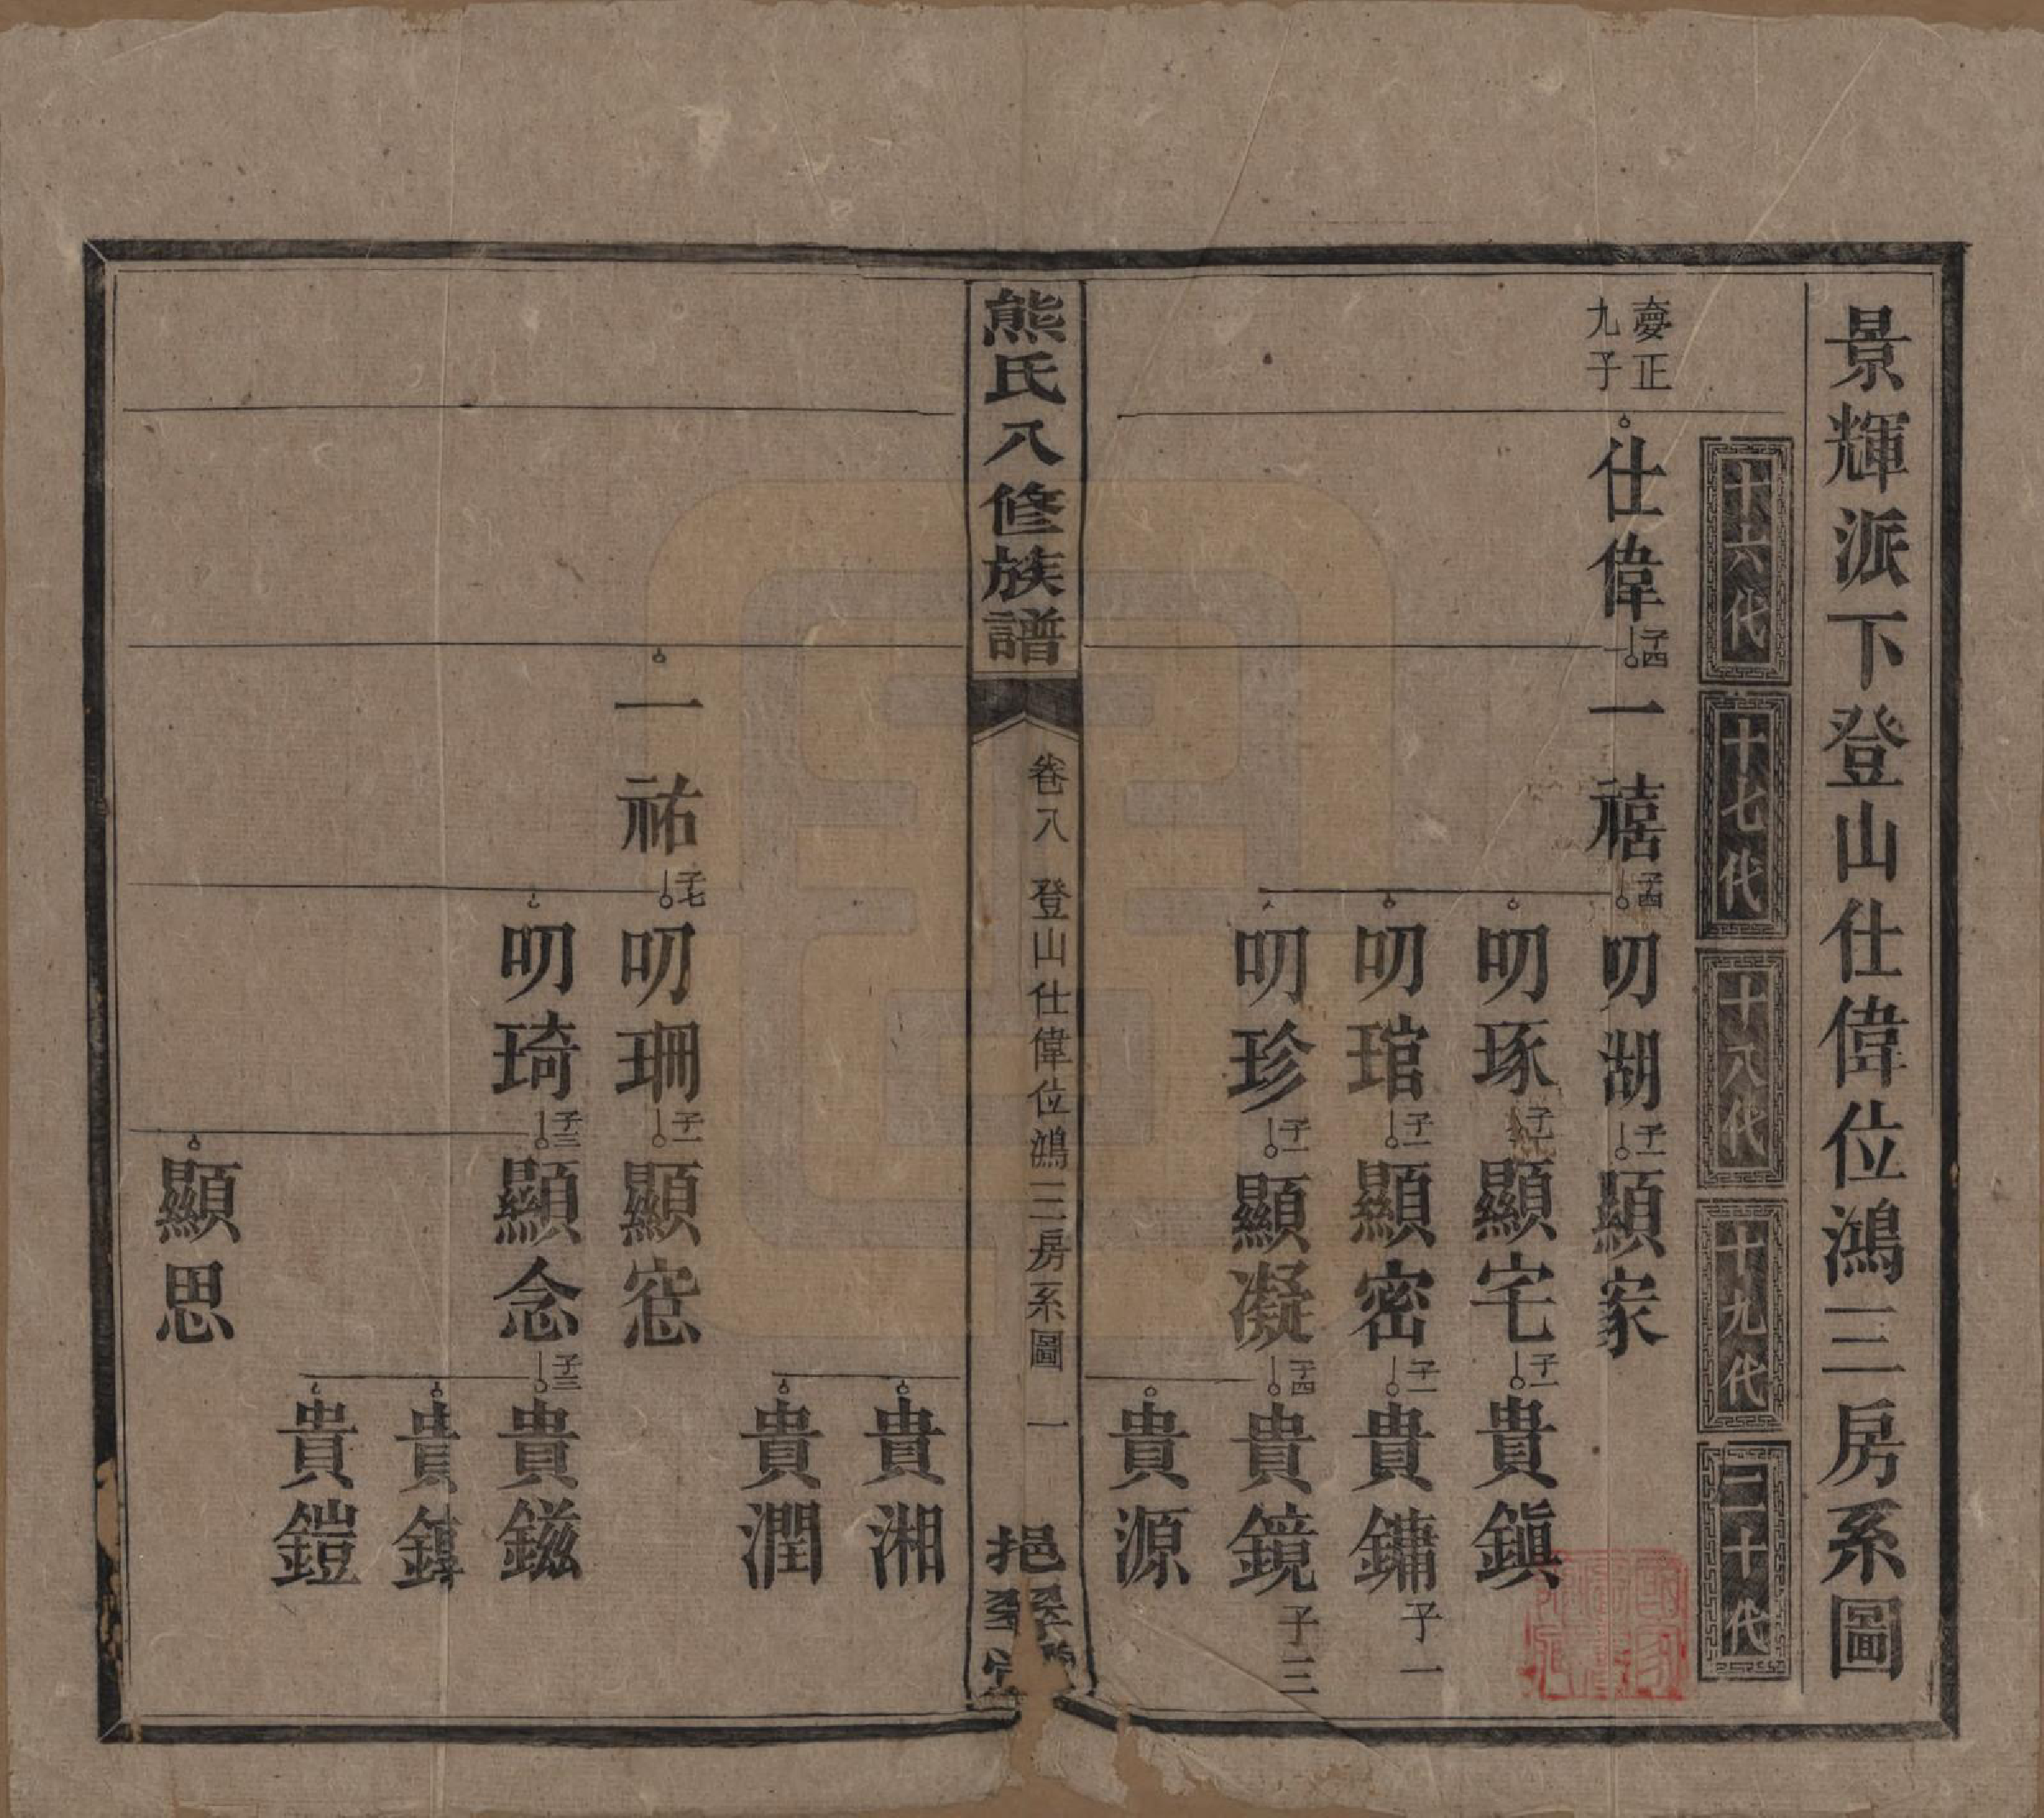 景輝派下登山仕偉位鴻三房系圖
十六代
十七代
十八代
十九代
二十代
正
九子
仕偉
子四
一禧
子四
叨湖
子一
顯家
叨琢
子一
顯宅
子一
貴鎮
叨琯
子一
顯密
子一
貴鏞
子一
叨珍
子一
顯凝
子四
貴鏡
子三
貴源
熊氏八修族譜
卷八
登山仕偉位鴻三房系圖
一
挹翠堂
貴湘
貴潤
一祐
子七
叨珊
子一
顯窓
叨琦
子三
顯念
子三
貴鎡
貴錞
貴鎧
顯思